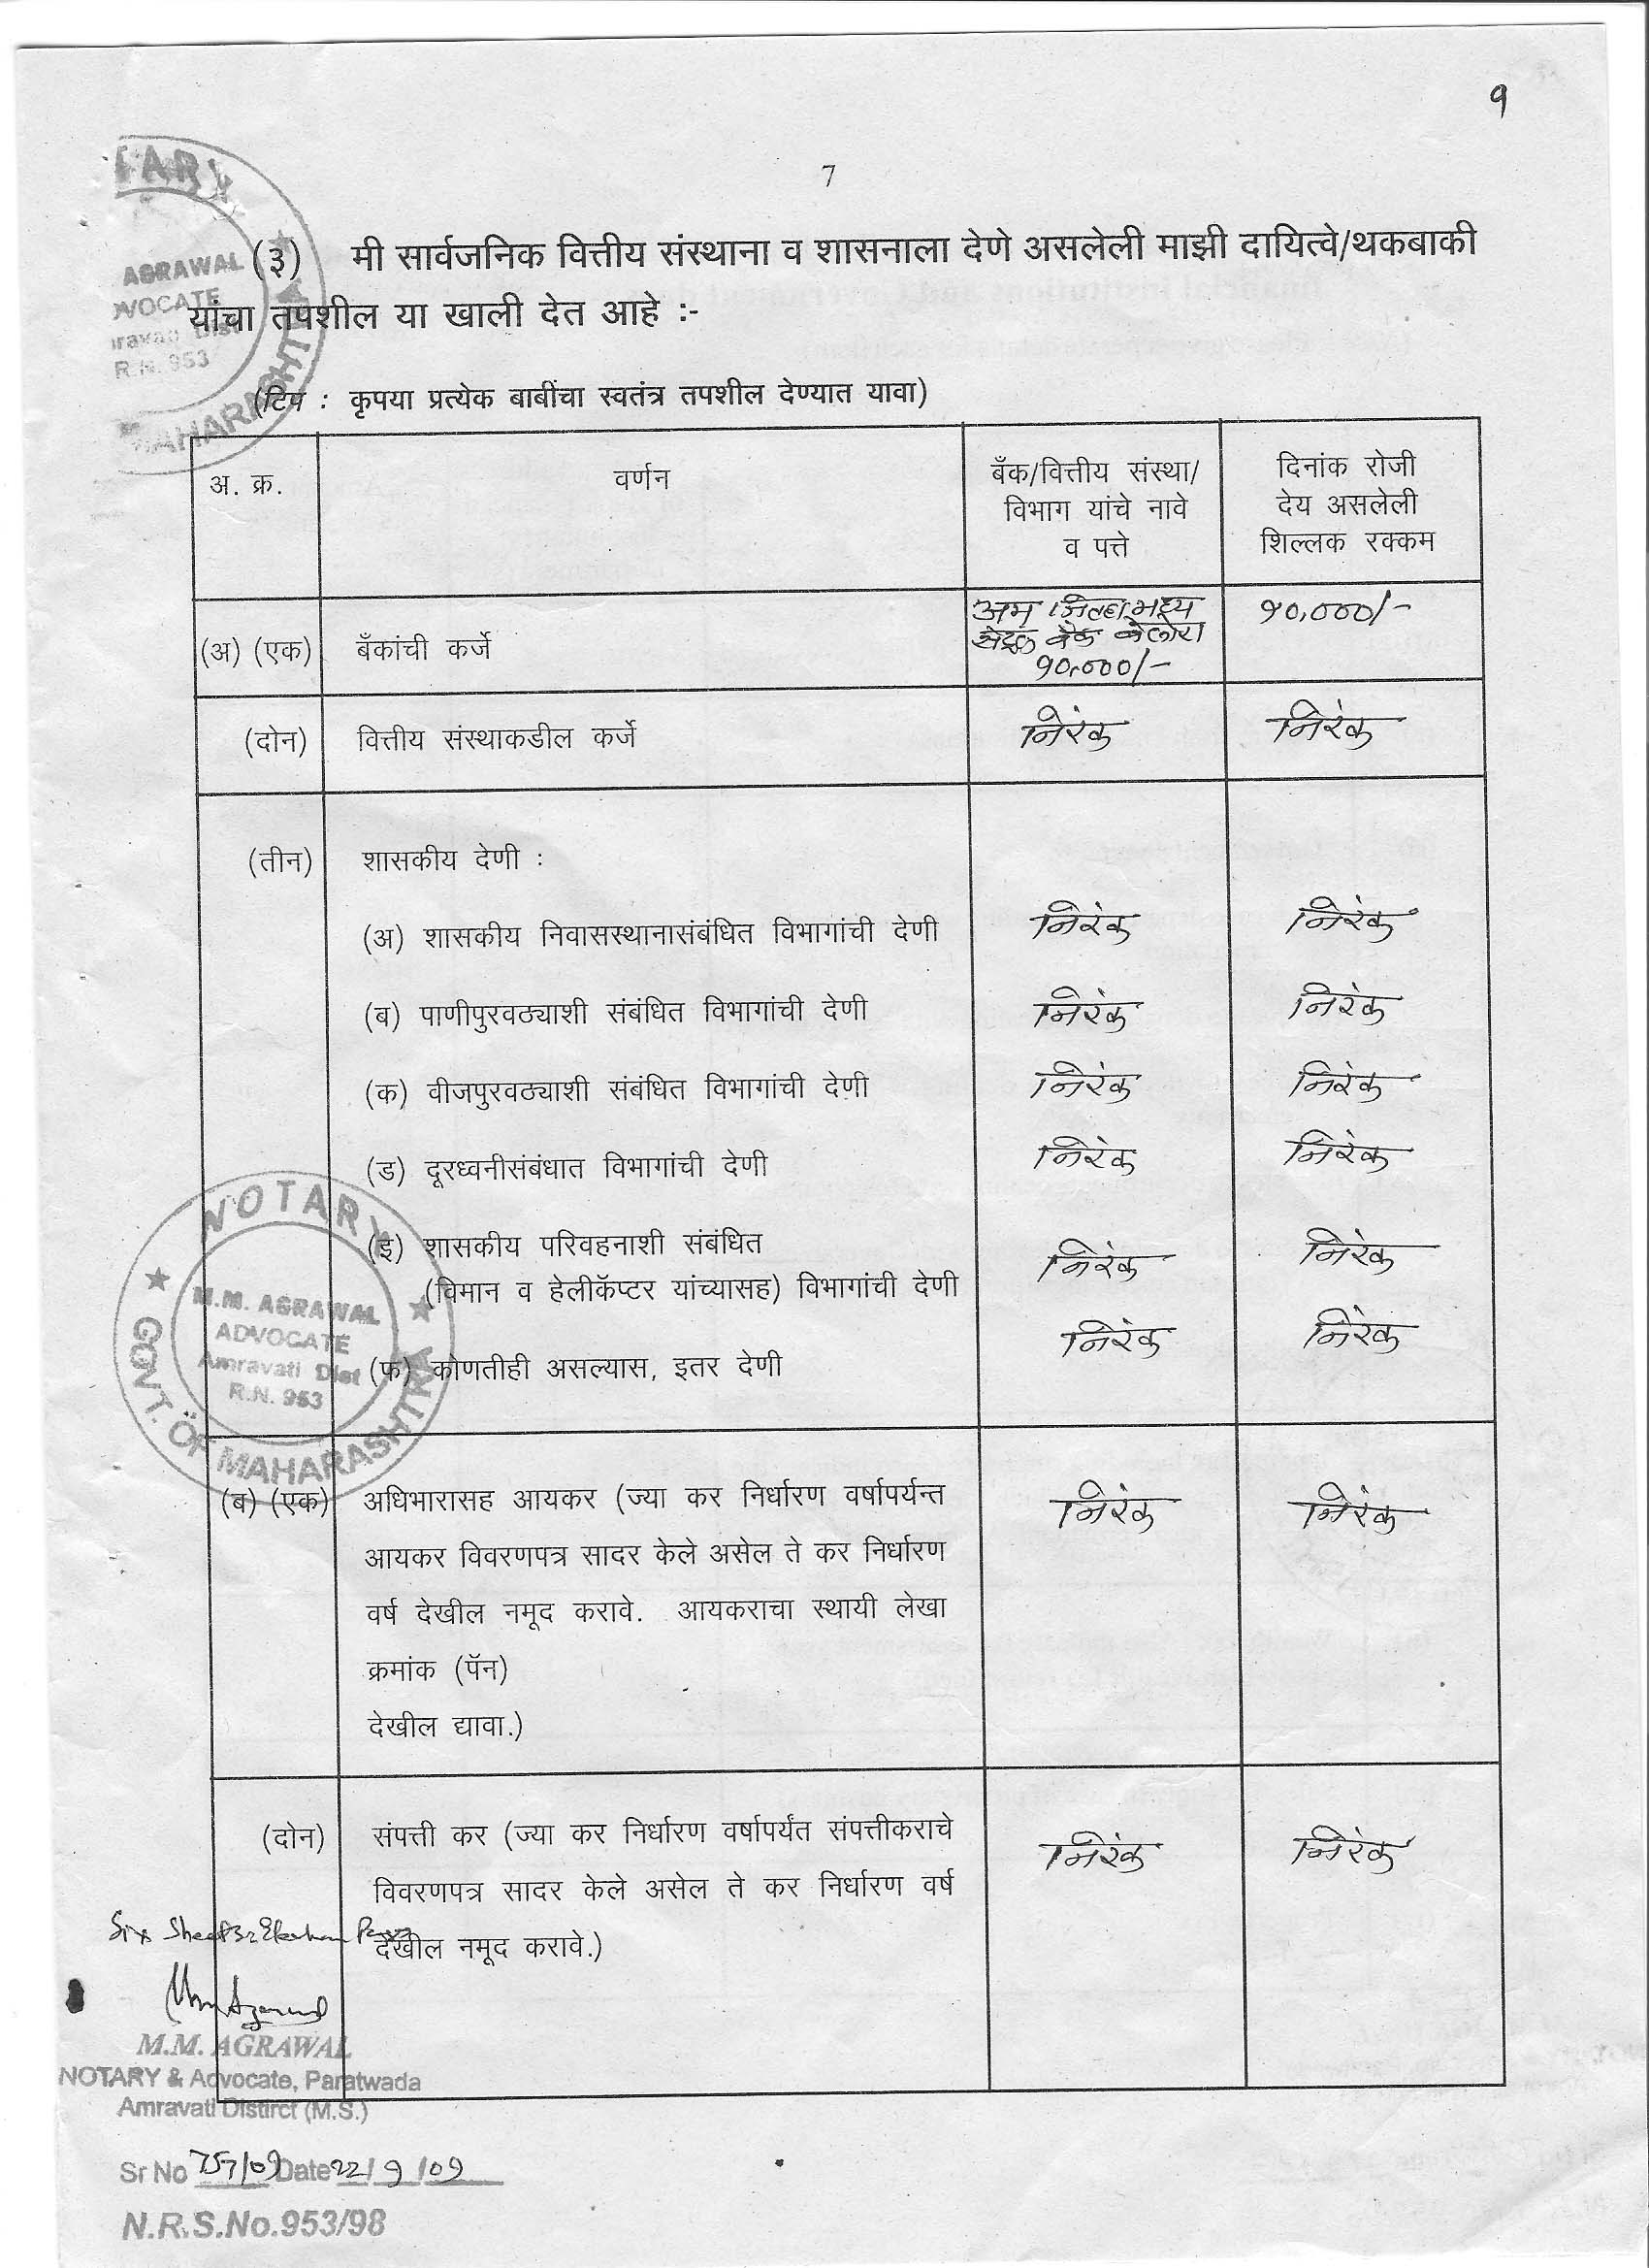 १
7
NOTARY
AGRAWAL
ADVOCATE
Amravati Dist
R.N. 953
MAHARASHTRA
(३) मी सार्वजनिक वित्तीय संस्थाना व शासनाला देणे असलेली माझी दायित्वे/थकबाकी
यांचा तपशील या खाली देत आहे :-
(टिप : कृपया प्रत्येक बाबींचा स्वतंत्र तपशील देण्यात यावा)
अ. क्र. वर्णन बँक/वित्तीय संस्था/ दिनांक रोजी
विभाग यांचे नावे देय असलेली
व पत्ते शिल्लक रक्कम
अम जिल्हा मध्य १०,०००/-
(अ) (एक) बँकांची कर्जे बँक
१०,०००/-
(दोन) वित्तीय संस्थाकडील कर्जे निरंक निरंक
(तीन) शासकीय देणी :
(अ) शासकीय निवासस्थानासंबंधित विभागांची देणी निरंक निरंक
(ब) पाणीपुरवठ्याशी संबंधित विभागांची देणी निरंक निरंक
(क) वीजपुरवठ्याशी संबंधित विभागांची देणी निरंक निरंक
(ड) दूरध्वनीसंबंधात विभागांची देणी निरंक निरंक
(इ) शासकीय परिवहनाशी संबंधित
(विमान व हेलीकॅप्टर यांच्यासह) विभागांची देणी निरंक निरंक
(फ) कोणतीही असल्यास, इतर देणी निरंक निरंक
NOTARY
M.M. AGRAWAL
ADVOCATE
Amravati Dist
R.N. 953
GOVT. OF MAHARASHTRA
(ब) (एक) अधिभारासह आयकर (ज्या कर निर्धारण वर्षापर्यन्त निरंक निरंक
आयकर विवरणपत्र सादर केले असेल ते कर निर्धारण
वर्ष देखील नमूद करावे. आयकराचा स्थायी लेखा
क्रमांक (पॅन)
देखील द्यावा.)
(दोन) संपत्ती कर (ज्या कर निर्धारण वर्षापर्यंत संपत्तीकराचे निरंक निरंक
विवरणपत्र सादर केले असेल ते कर निर्धारण वर्ष
देखील नमूद करावे.)
Six
M.M. AGRAWAL
NOTARY & Advocate, Paratwada
Amravati Distirct (M.S.)
Sr No 757/09 Date 22/9/09
N.R.S.No.953/98